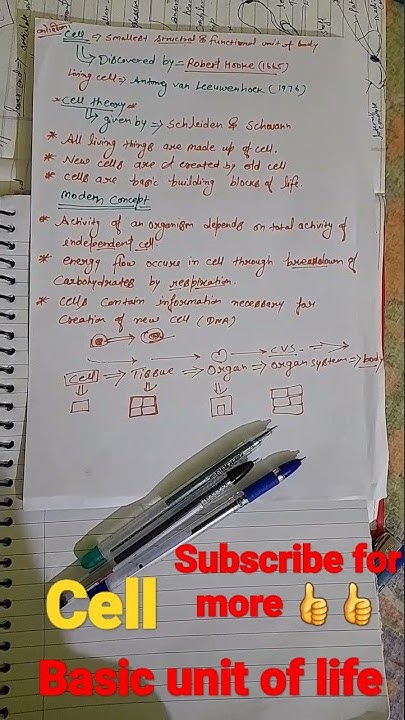 Cell => Smallest structural & functional unit of body
Discovered by = Robert Hooke (1665)
Living cell => Antony van Leeuwenhoek (1976)
*Cell theory*
given by => Schleiden & Schwann
* All living things are made up of cell.
* New cells are created by old cell
* Cells are basic building blocks of life.
Modern Concept
* Activity of an organism depends on total activity of
independent cell.
* energy flow occure in cell through breakdown of
Carbohydrates by respiration.
* Cells contain information necessary for
creation of new cell (DNA)
CVS
Cell => Tissue => Organ => Organ system => body
Subscribe for
more 👍👍
Cell
Basic unit of life